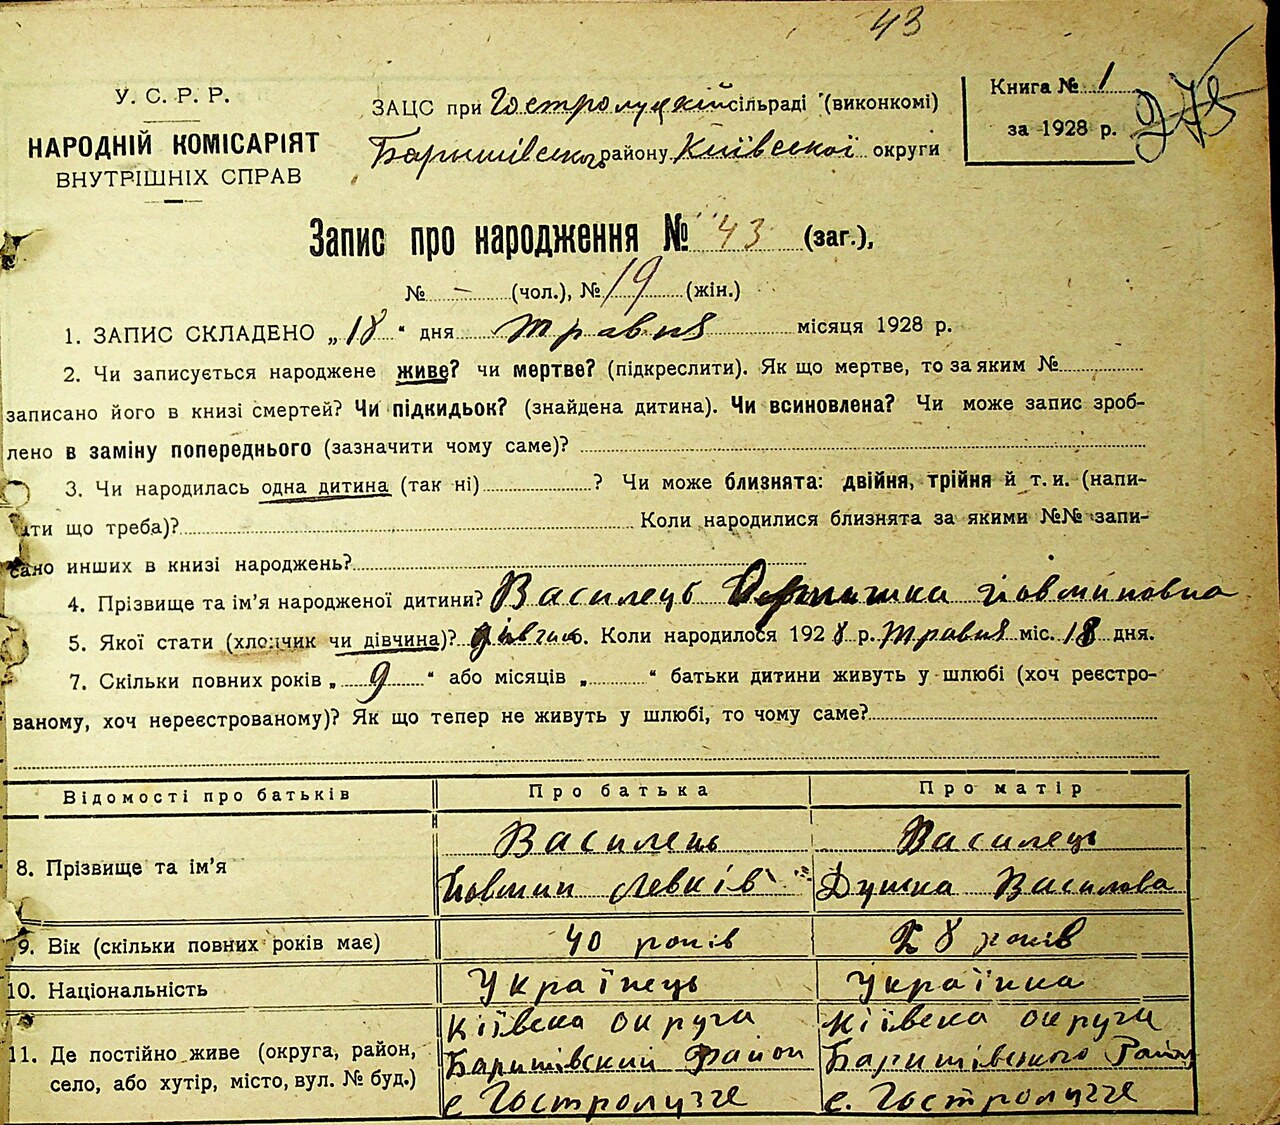 43
У. С. Р. Р.
НАРОДНІЙ КОМІСАРІЯТ
ВНУТРІШНІХ СПРАВ
ЗАЦС при Гостролуцкій сільраді (виконкомі)
Баришівського району Київської округи
Книга № 1
за 1928 р.
275
Запис про народження № 43 (заг.),
№ – (чол.), № 19 (жін.)
1. ЗАПИС СКЛАДЕНО „18“ дня травня місяця 1928 р.
2. Чи записується народжене живе? чи мертве? (підкреслити). Як що мертве, то за яким №
записано його в книзі смертей? Чи підкидьок? (знайдена дитина). Чи всиновлена? Чи може запис зроб-
лено в заміну попереднього (зазначити чому саме)?
3. Чи народилась одна дитина (так ні) ? Чи може близнята: двійня, трійня й т. и. (напи-
сати що треба)? Коли народилися близнята за якими №№ запи-
сано инших в книзі народжень?
4. Прізвище та ім'я народженої дитини? Василець Йовминовна
5. Якої стати (хлопчик чи дівчина)? дівчина. Коли народилося 1928 р. травня міс. 18 дня.
7. Скільки повних років „ 9 “ або місяців „ “ батьки дитини живуть у шлюбі (хоч реєстро-
ваному, хоч нереєстрованому)? Як що тепер не живуть у шлюбі, то чому саме?
Відомості про батьків Про батька Про матір
8. Прізвище та ім'я
Василець
Йовмин Левків
Василець
Душка Василова
9. Вік (скільки повних років має) 40 років 28 років
10. Національність Українець Українка
11. Де постійно живе (округа, район,
село, або хутір, місто, вул. № буд.)
Київска округи
Баришівский район
с Гостролуччє
Київска округи
Баришівського Район
с. Гостролуччє